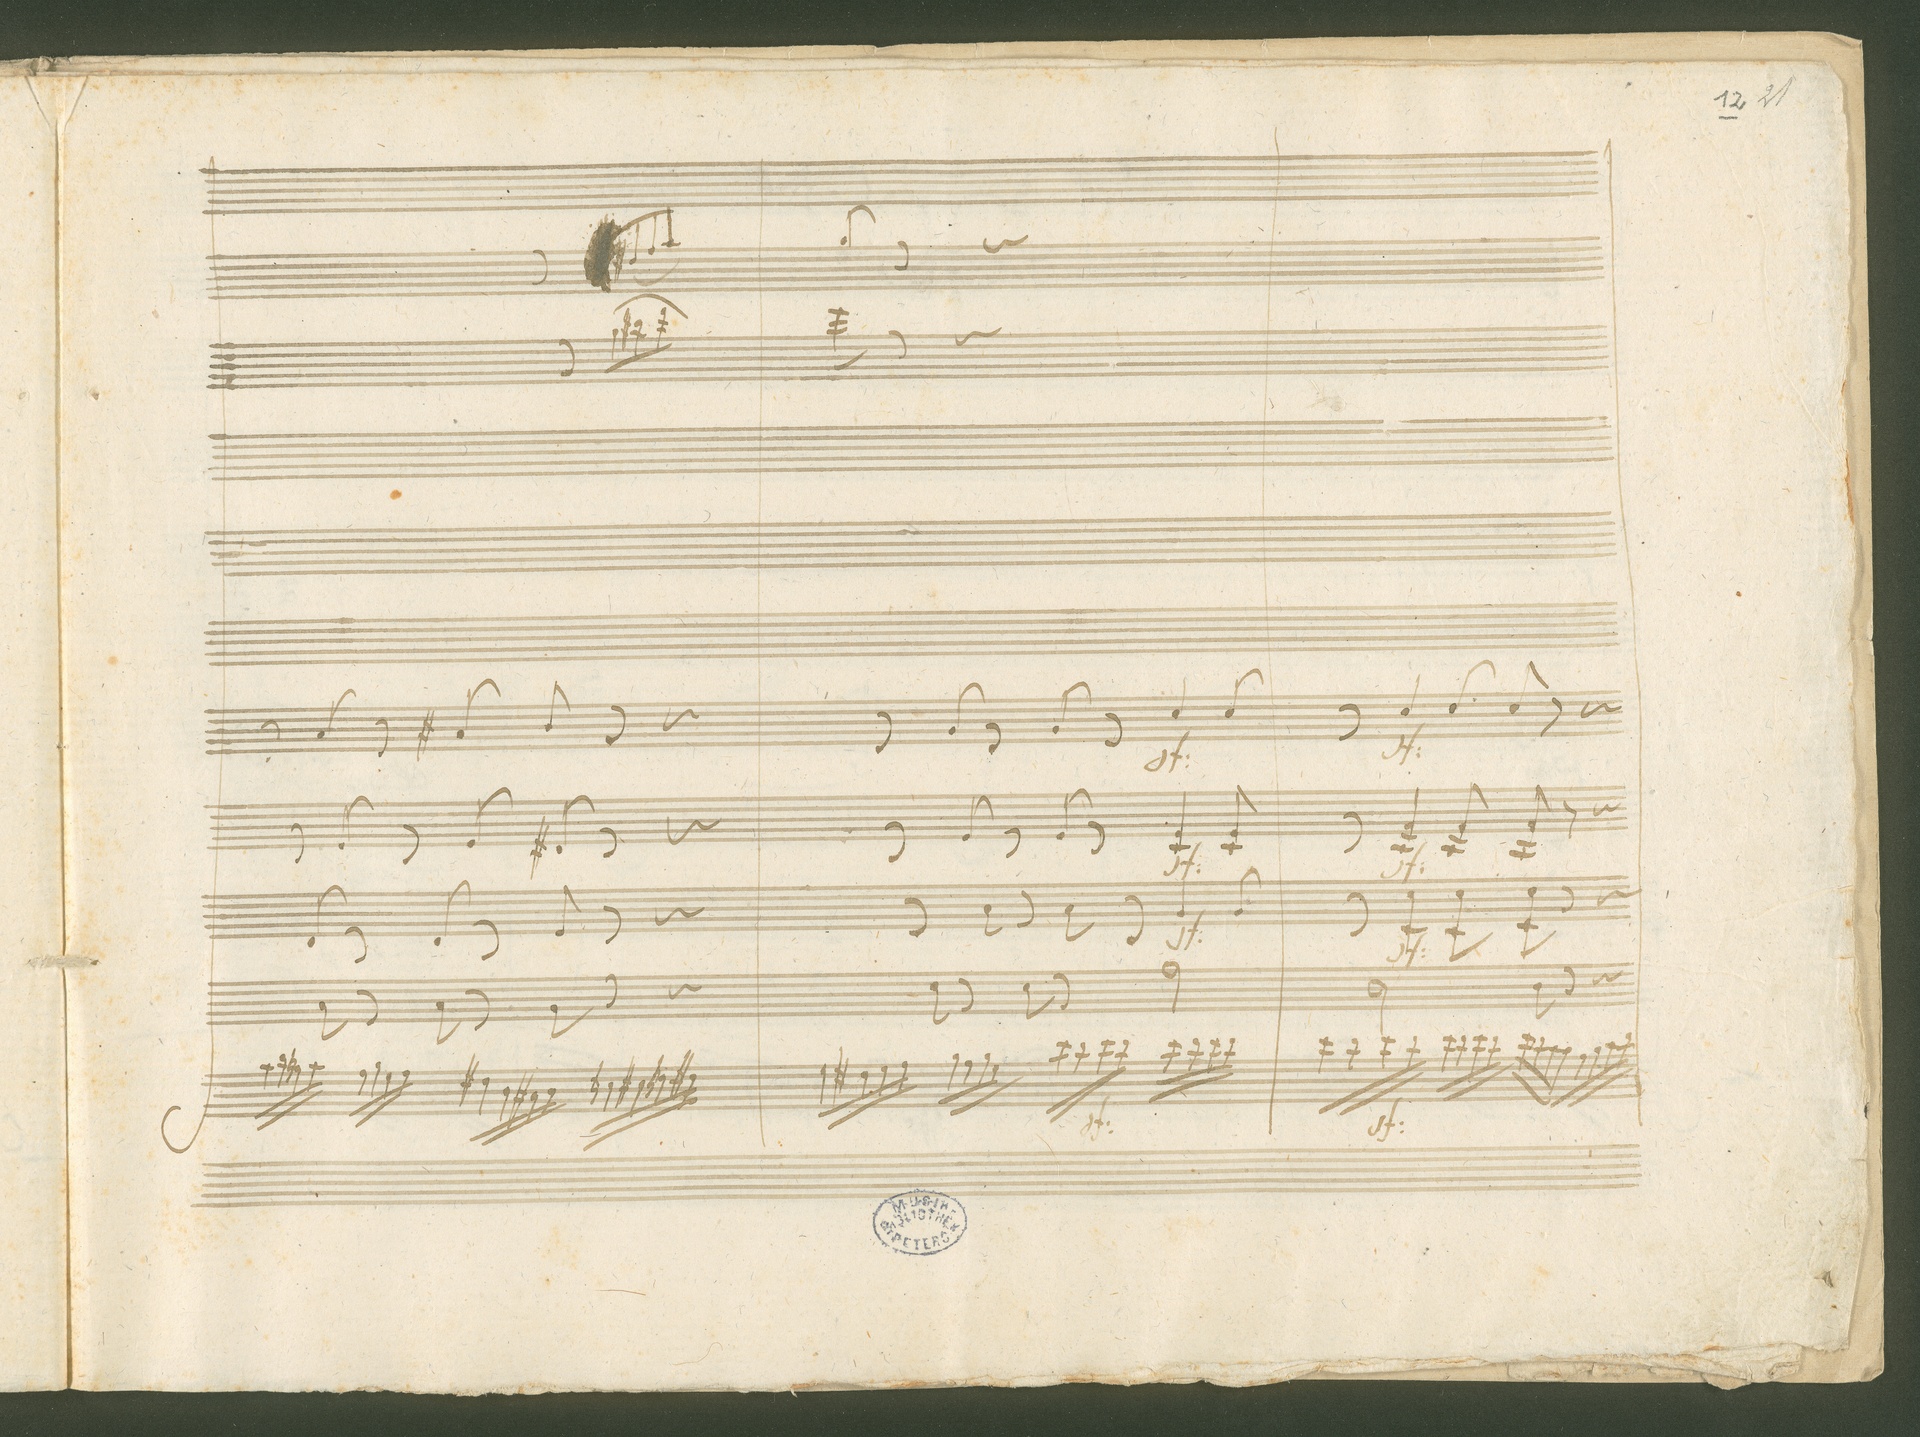 12 21
sf:
sf:
sf:
sf:
sf:
sf:
sf:
sf:
MUSIK-
BIBLIOTHEK
PETERS